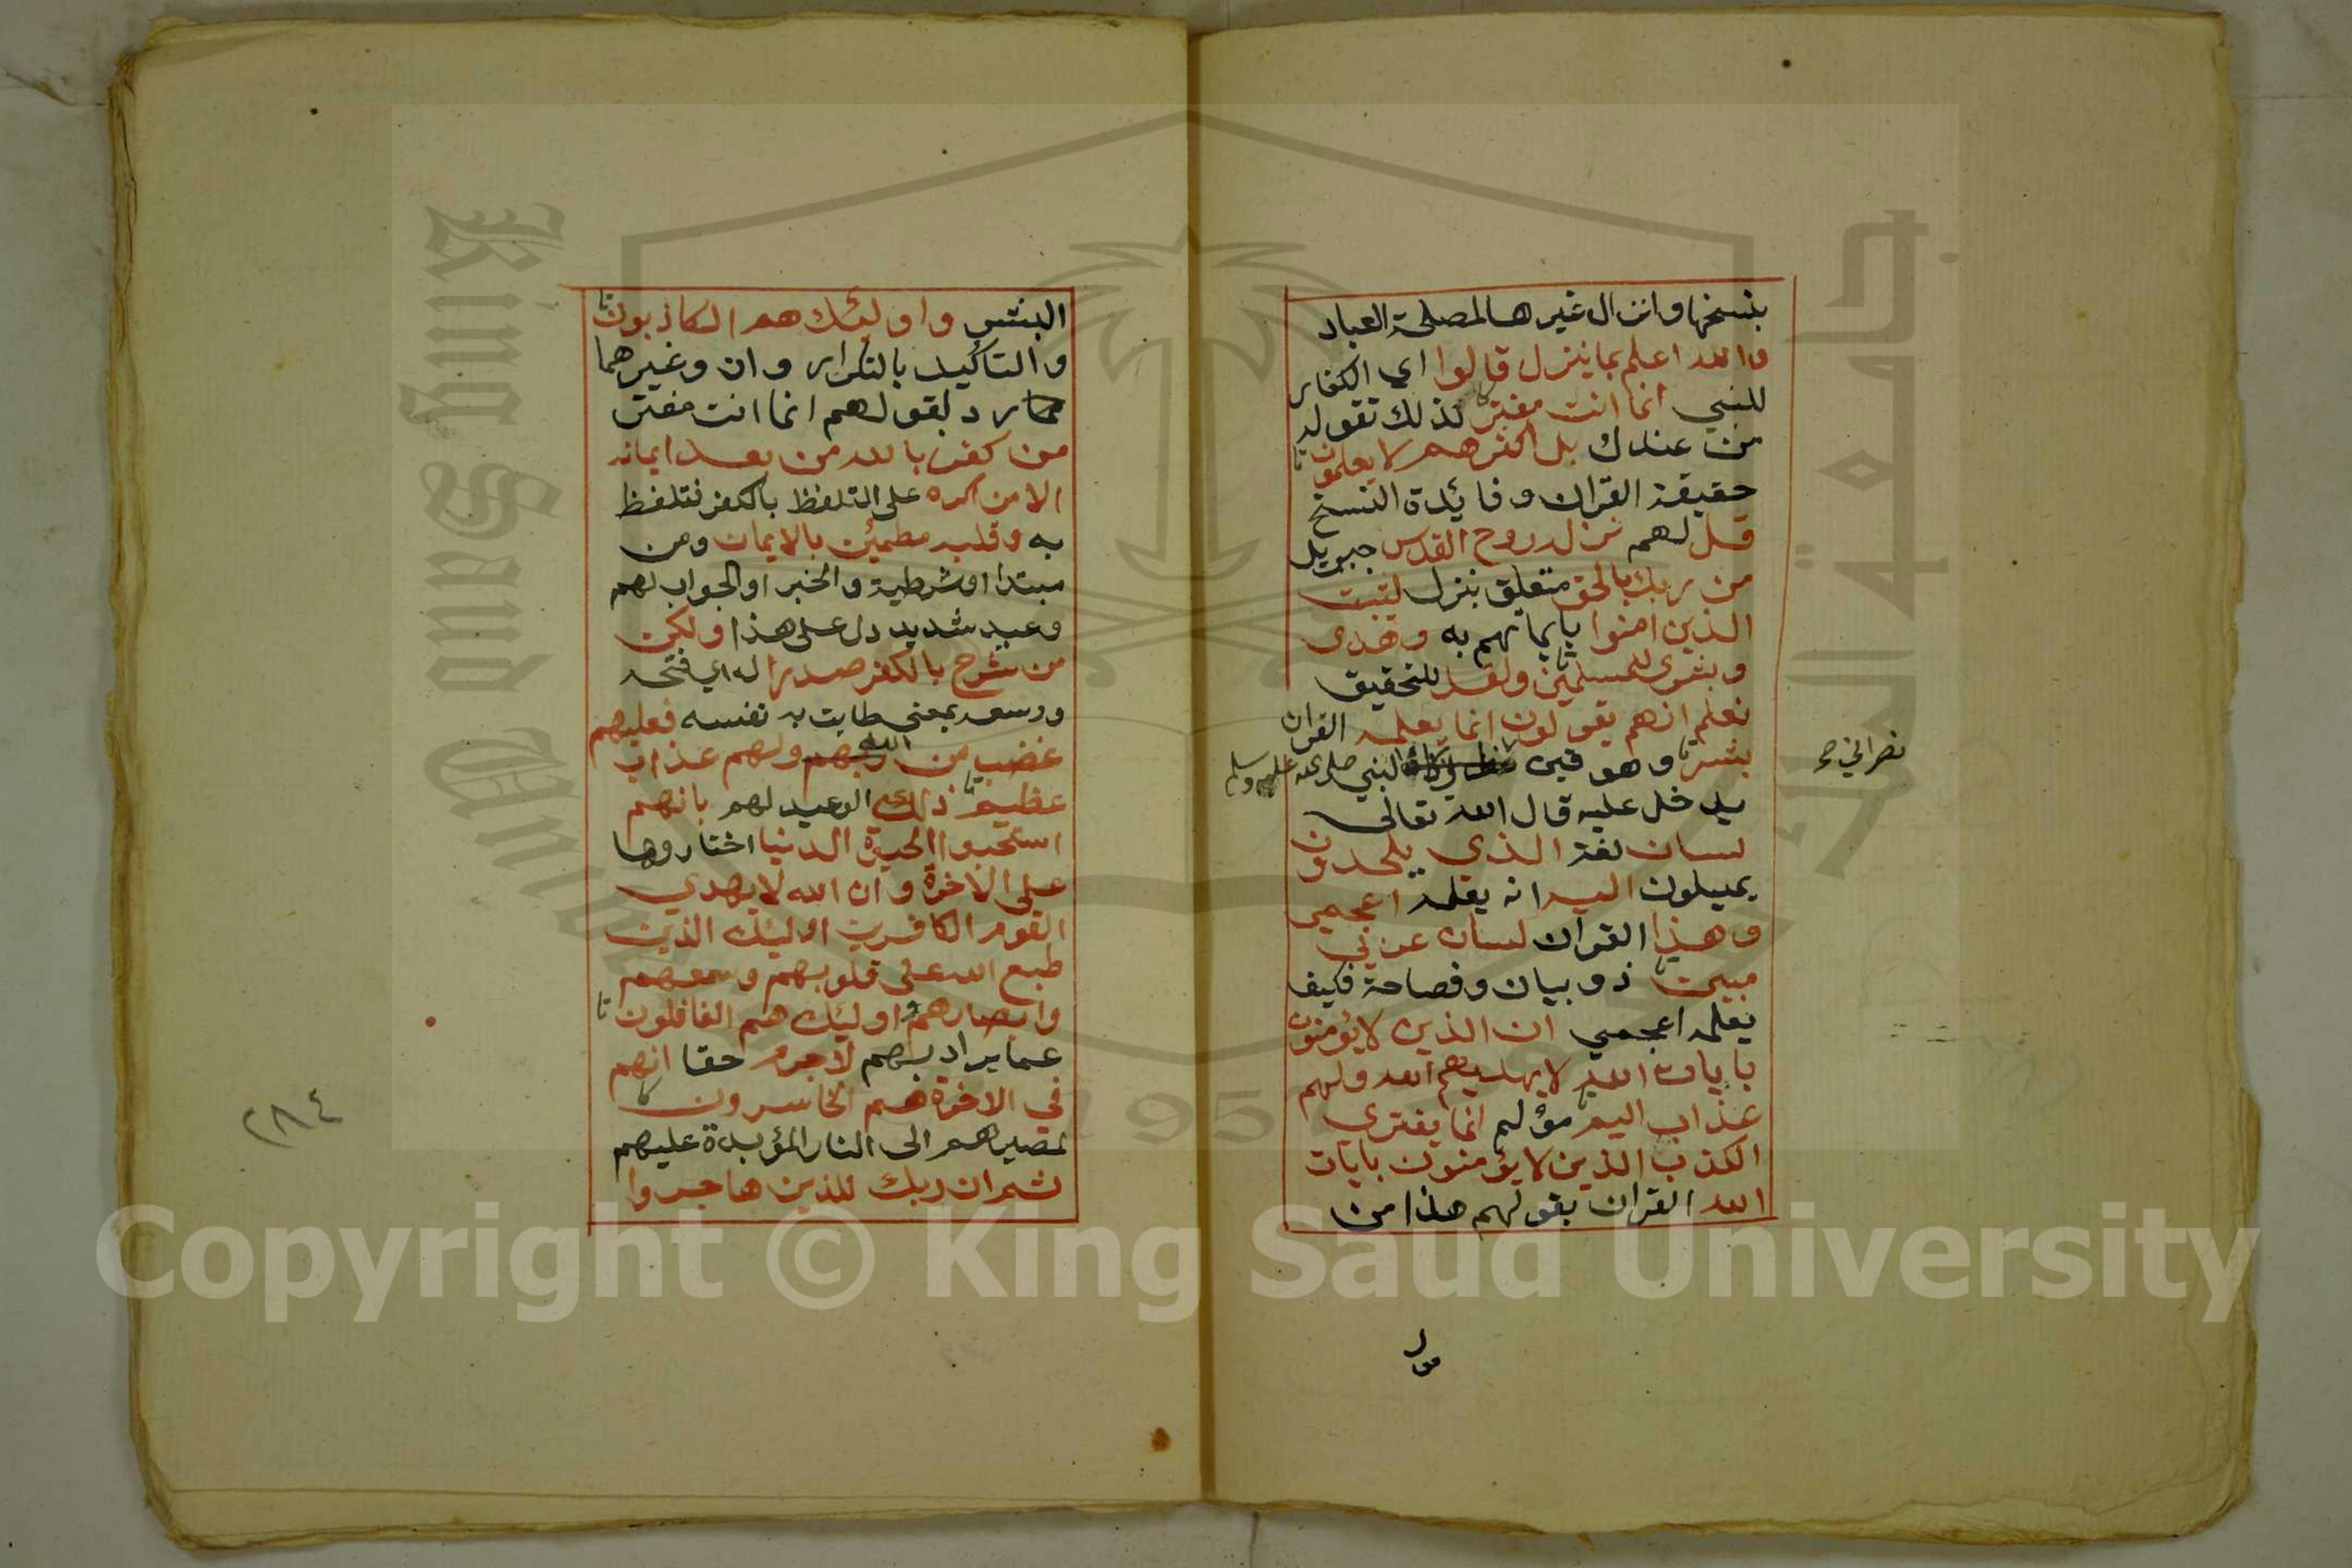 بنسخها وانزال غيرها لمصلحة العباد
والله اعلم بما ينزل قالوا اي الكفار
للنبي انما انت مفتر كذلك تقوله
من عندك بل اكثرهم لا يعلمون
حقيقة القران وفايدة النسخ
قل لهم نزله روح القدس جبريل
من ربك بالحق متعلق بنزل ليثبت
الذين امنوا بايمانهم به وهدى
وبشرى للمسلمين ولقد للتحقيق
نعلم انهم يقولون انما يعلمه القران
بشر وهو قين النبي صلى الله عليه وسلم
نصراني صح
يدخل عليه قال الله تعالى
لسان لغة الذي يلحدون
يميلون اليه انه يعلمه اعجمي
وهذا القران لسان عربي
مبين ذو بيان وفصاحة فكيف
يعلمه اعجمي ان الذين لا يؤمنون
بايات الله لا يهديهم الله ولهم
عذاب اليم مؤلم انما يفتري
الكذب الذين لا يؤمنون بايات
الله القران بقولهم هذا من
البشر واوليئك هم الكاذبون
والتاكيد بالتكرار وان وغيرهما
رد لقولهم انما انت مفتر
من كفر بالله من بعد ايمانه
الا من اكره على التلفظ بالكفر فتلفظ
به وقلبه مطمئن بالايمان ومن
مبتدا او شرطية والخبر او الجواب لهم
وعيد شديد دل على هذا ولكن
من شرح بالكفر صدرا له اي فتحه
ووسعه بمعنى طابت به نفسه فعليهم
غضب من ربهم الله ولهم عذاب
عظيم ذلك الوعيد لهم بانهم
استحبوا الحيوة الدنيا اختاروها
على الاخرة وان الله لا يهدي
القوم الكافرين اوليئك الذين
طبع الله على قلوبهم وسمعهم
وابصارهم واوليئك هم الغافلون
عما يراد بهم لا جرم حقا انهم
في الاخرة هم الخاسرون
لمصيرهم الى النار المؤبدة عليهم
ثم ان ربك للذين هاجروا
٢٨٤
Copyright © King Saud University
1957